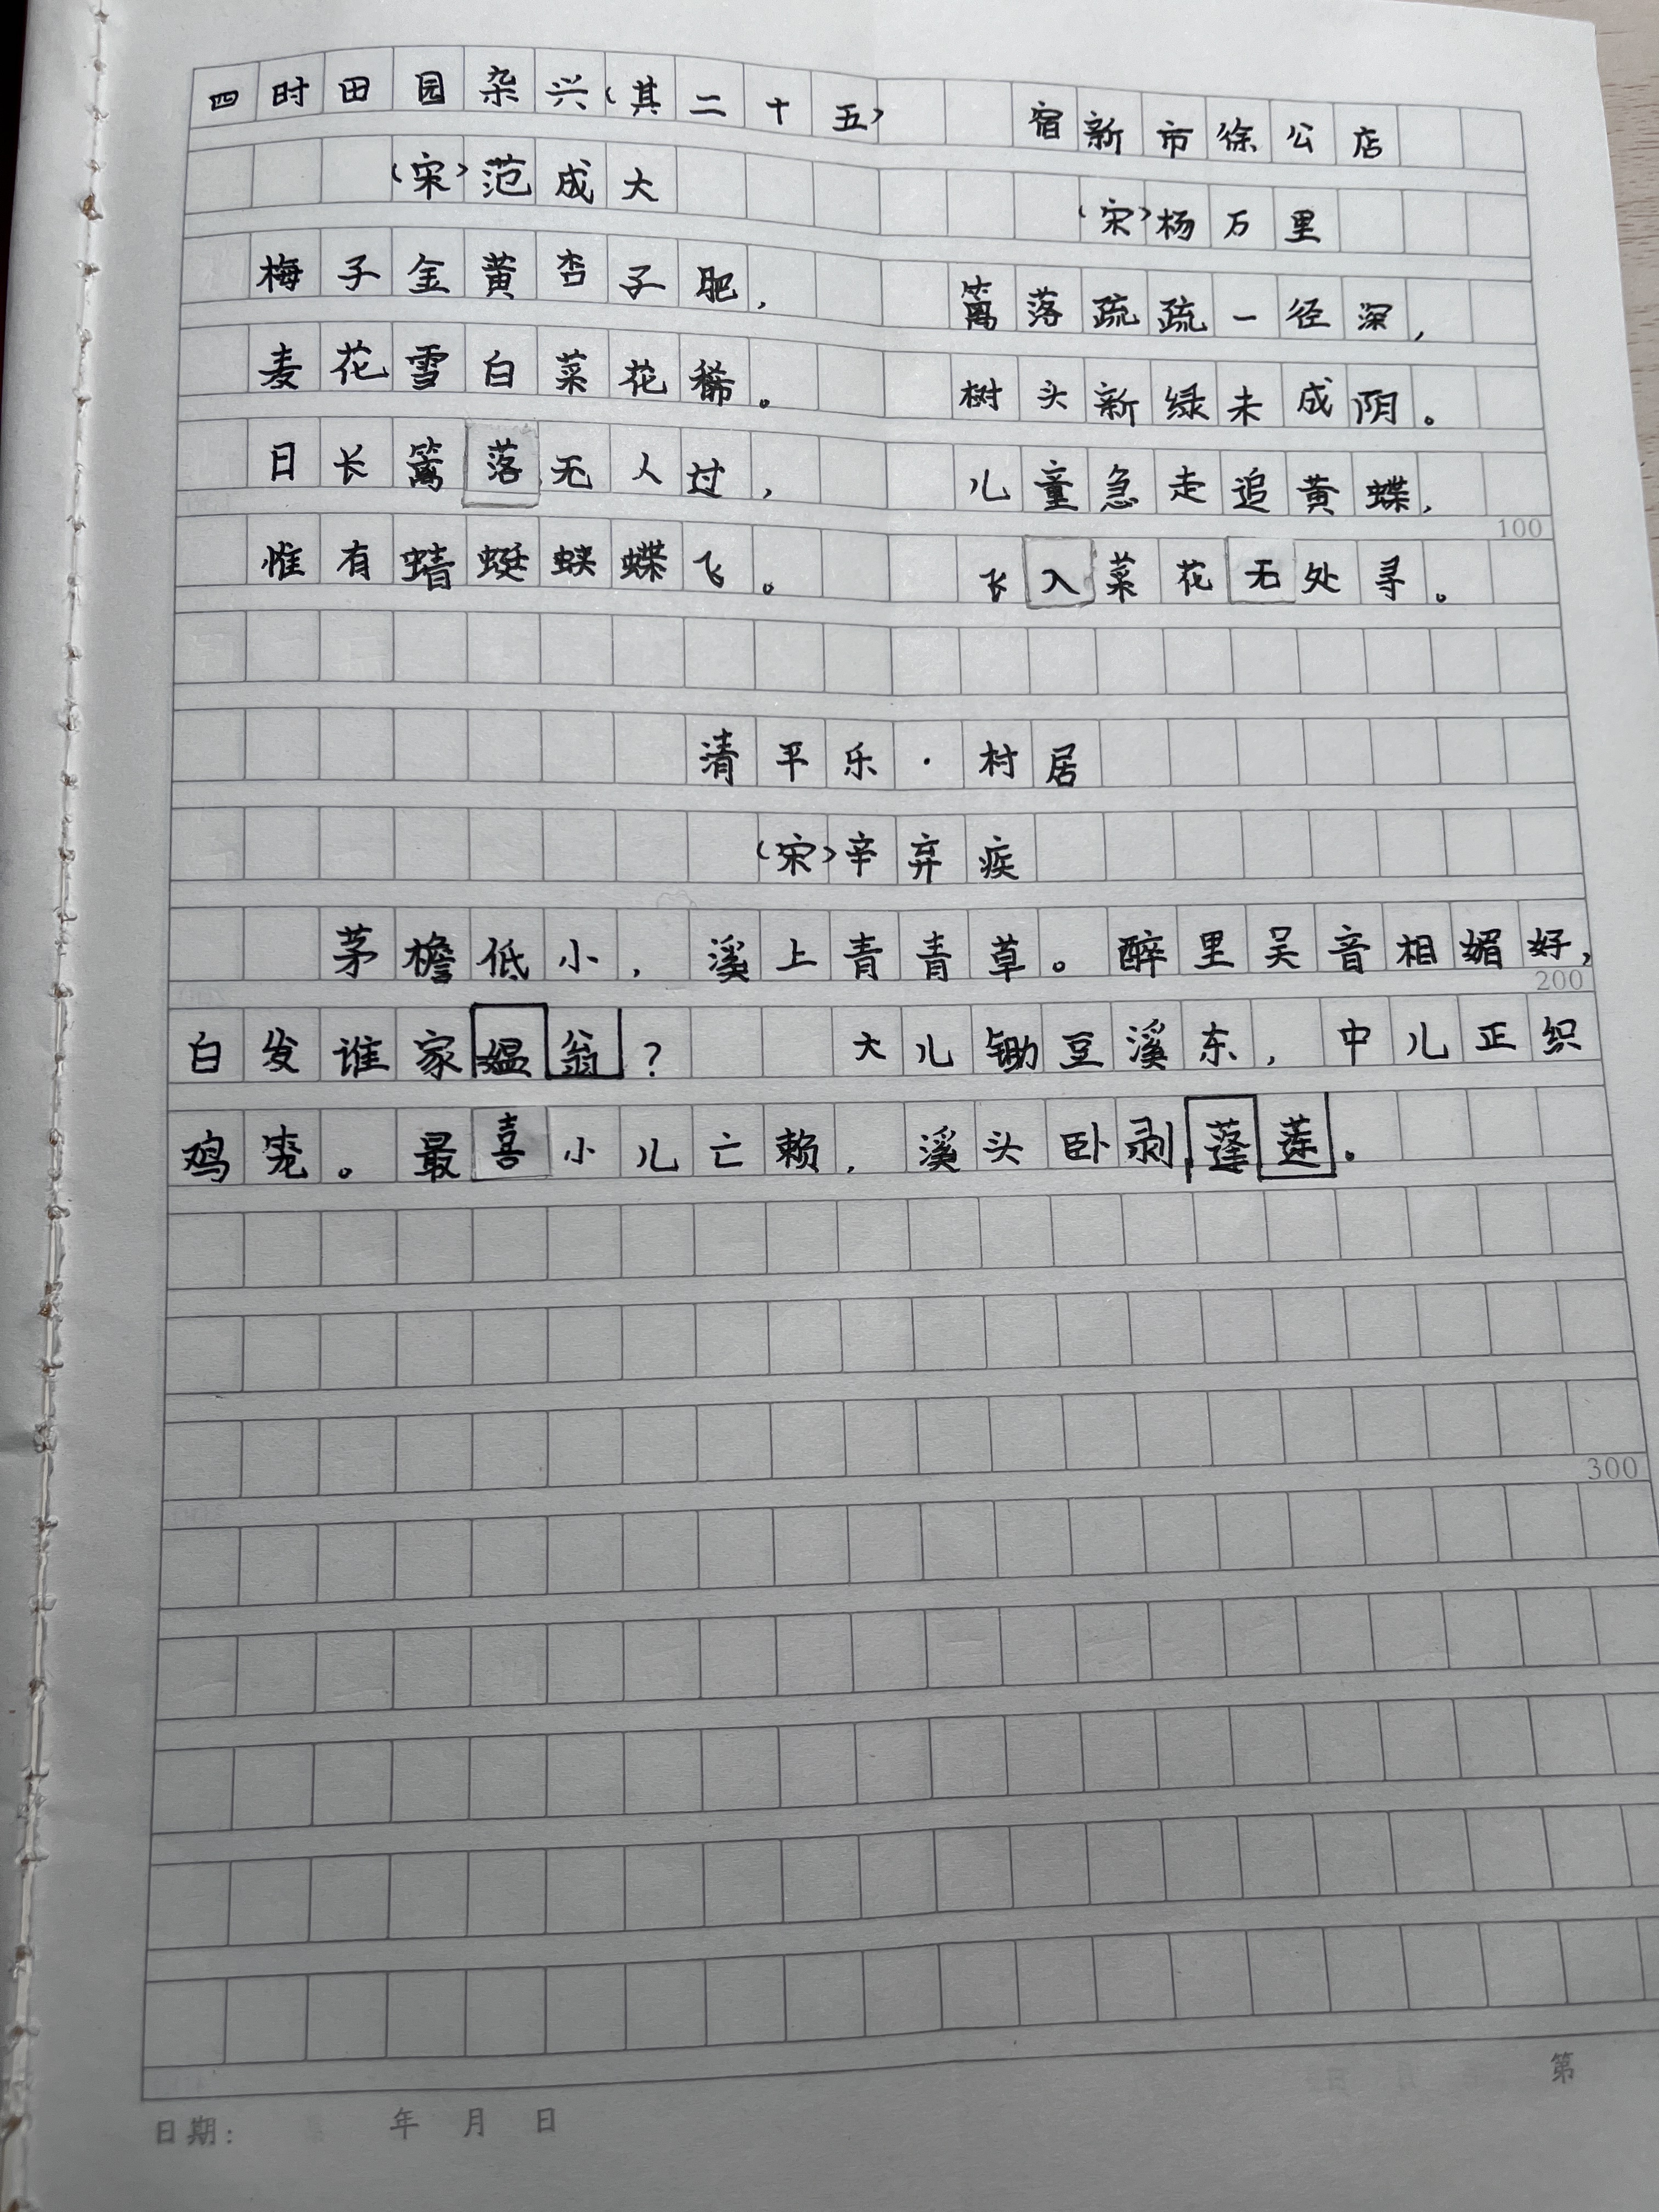 四时田园杂兴(其二十五)
(宋)范成大
梅子金黄杏子肥,
麦花雪白菜花稀。
日长篱落无人过,
惟有蜻蜓蛱蝶飞。
宿新市徐公店
(宋)杨万里
篱落疏疏一径深,
树头新绿未成阴。
儿童急走追黄蝶,
飞入菜花无处寻。
100
清平乐·村居
(宋)辛弃疾
茅檐低小,溪上青青草。醉里吴音相媚好,
200
白发谁家媪翁? 大儿锄豆溪东,中儿正织
鸡笼。最喜小儿亡赖,溪头卧剥蓬莲。
300
第
日期: 年 月 日